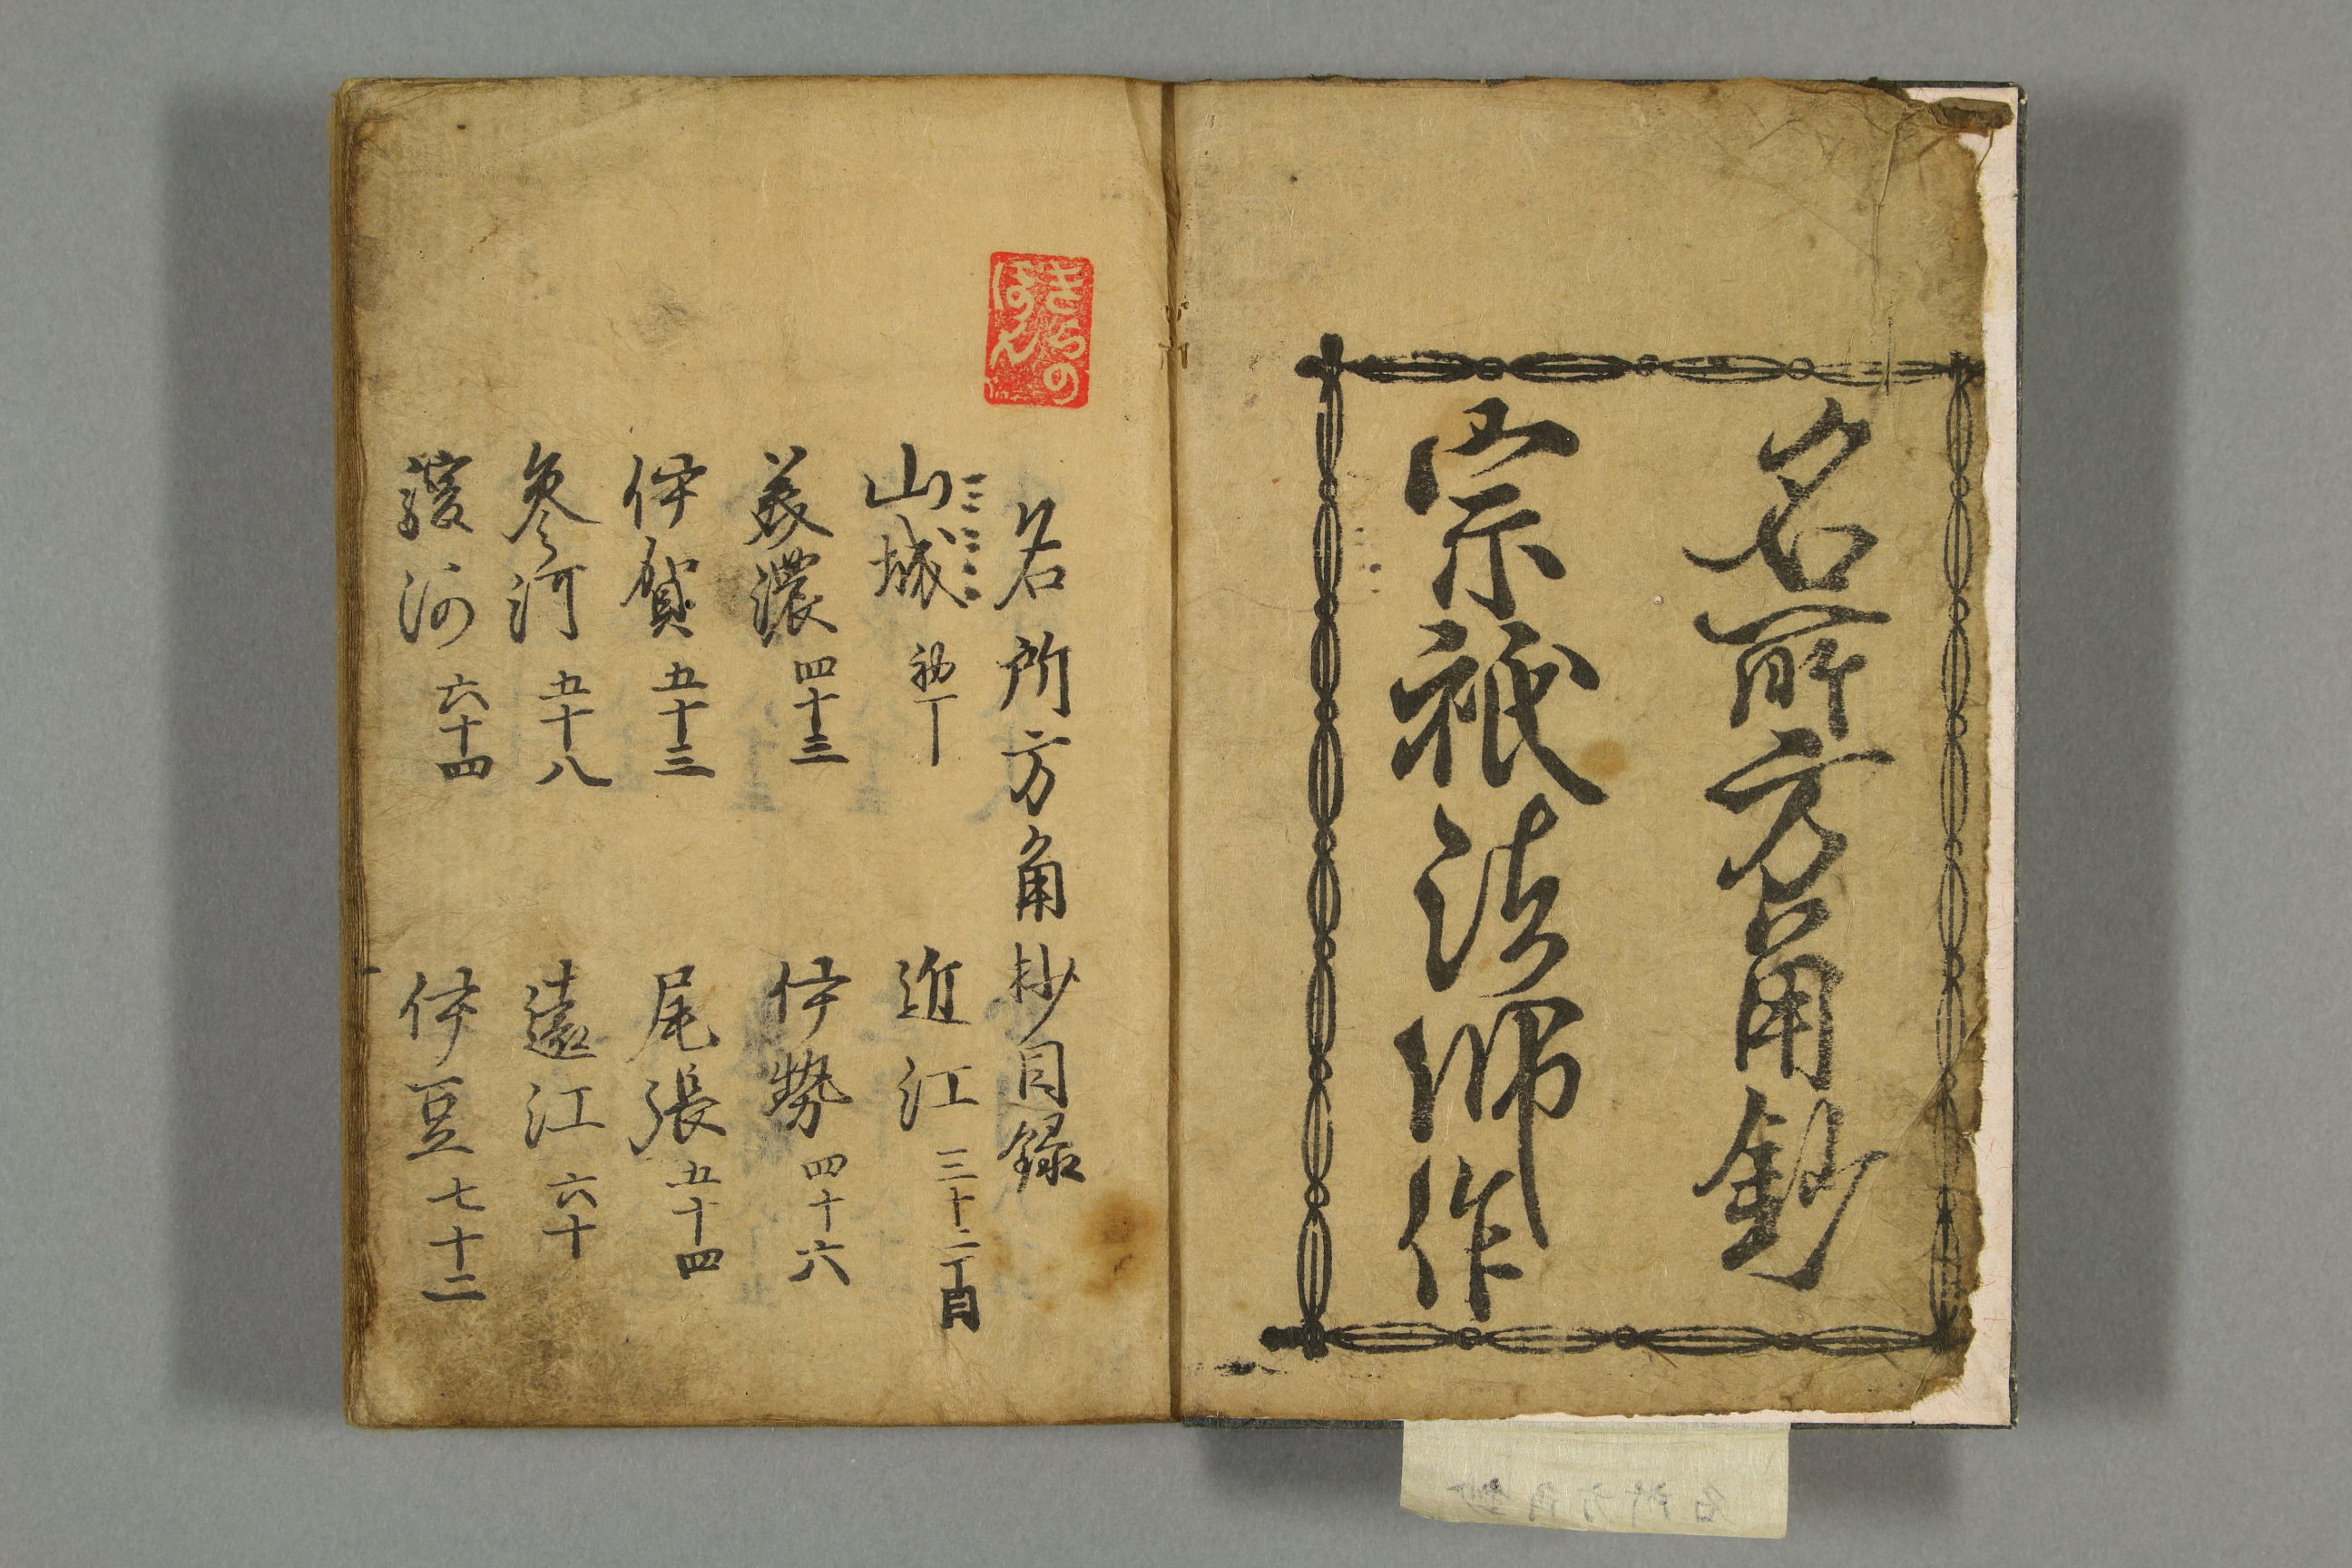 名所方角鈔
宗祇法師作
きらの
ほん
名所方角抄目録
山城 初丁
近江 三十二丁目
美濃 四十三
伊勢 四十六
伊賀 五十三
尾張 五十四
参河 五十八
遠江 六十
駿河 六十四
伊豆 七十二
名所方角鈔